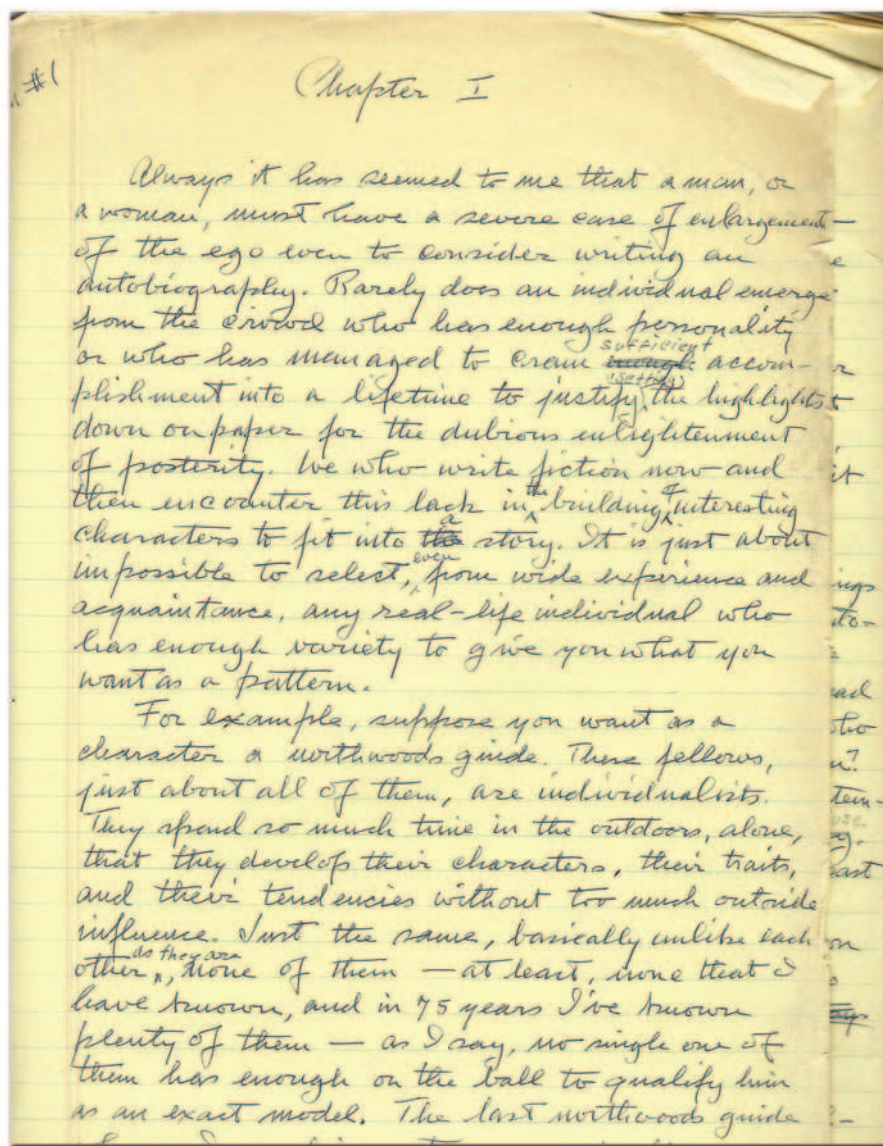 #1
Chapter I
Always it has seemed to me that a man, or
a woman, must have a severe case of enlargement
of the ego even to consider writing an
autobiography. Rarely does an individual emerge
from the crowd who has enough personality
sufficient
or who has managed to cram enough accom-
(setting)
plishment into a lifetime to justify the highlights
down on paper for the dubious enlightenment
of posterity. We who write fiction now and
then encounter this lack in the building of interesting
a
characters to fit into the story. It is just about
even
impossible to select, from wide experience and
acquaintance, any real-life individual who
has enough variety to give you what you
want as a pattern.
For example, suppose you want as a
character a northwoods guide. These fellows,
just about all of them, are individualists.
They spend so much time in the outdoors, alone,
that they develop their characters, their traits,
and their tendencies without too much outside
influence. Just the same, basically unlike each
as they are
other, none of them — at least, none that I
have known, and in 75 years I've known
plenty of them — as I say, no single one of
them has enough on the ball to qualify him
as an exact model. The last northwoods guide